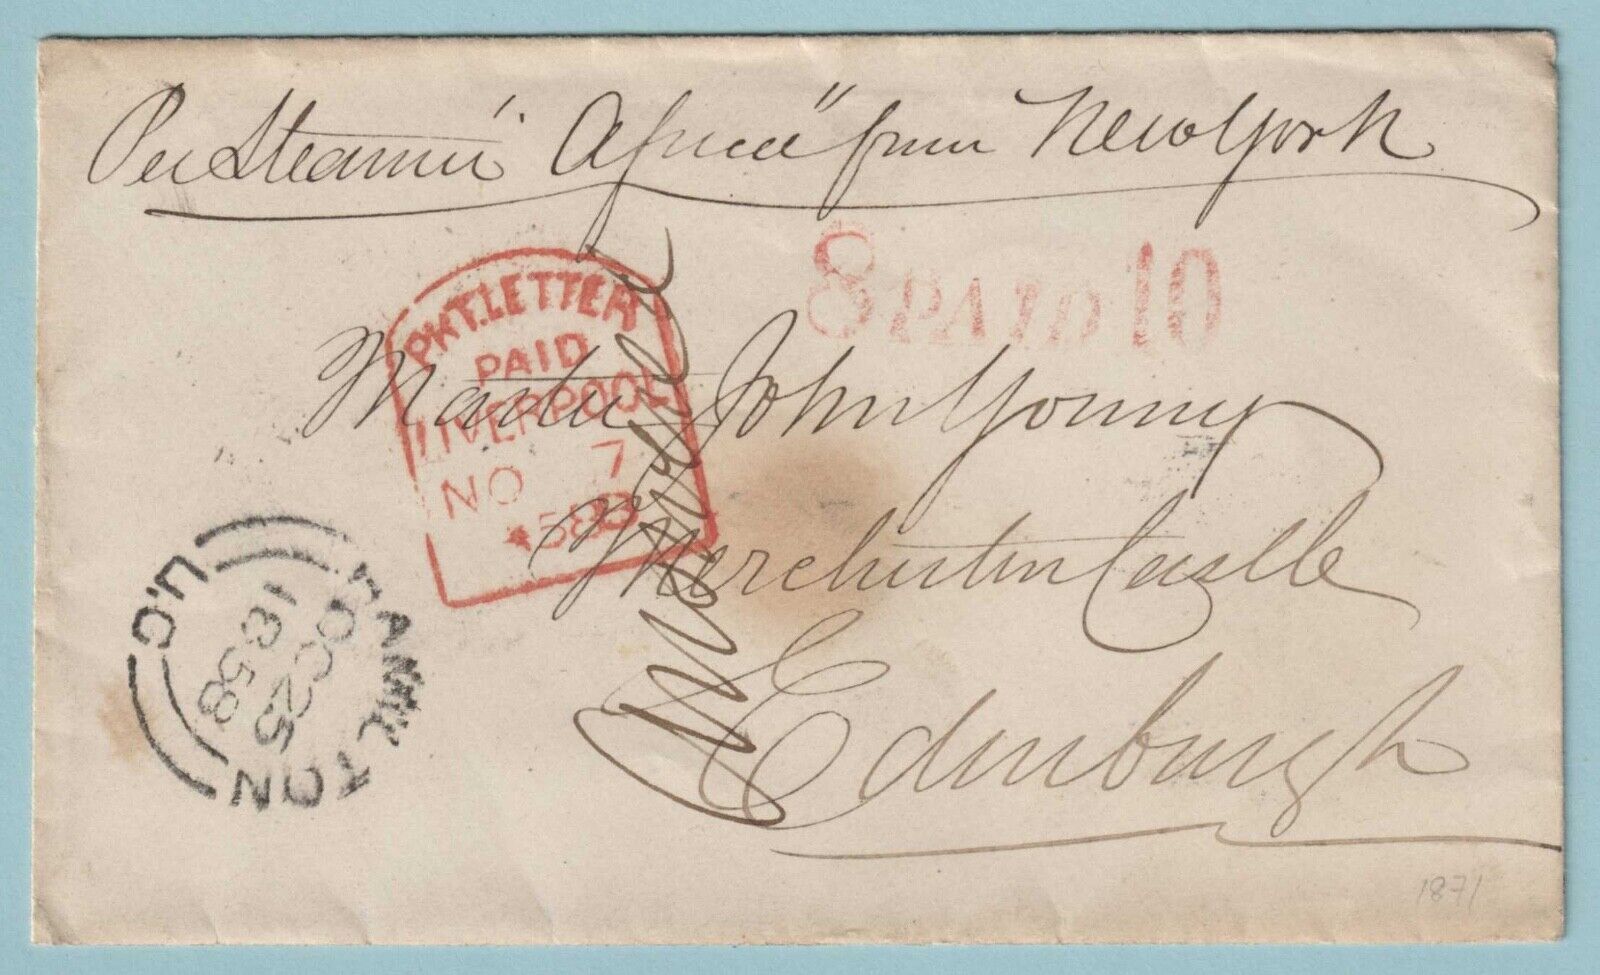 Per Steamer "Africa" from New York
8 PAID 10
PKT. LETTER
PAID
LIVERPOOL
NO 7
58
Master John Young
Merchiston Castle
Edinburgh
HAMILTON
OC 25
1858
U.C
1871